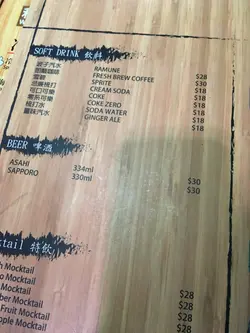 SOFT DRINK 飲料
波子汽水 RAMUNE $28
FRESH BREW COFFEE $30
雪碧 SPRITE $18
忌廉梳打 CREAM SODA $18
可口可樂 COKE $18
零系可樂 COKE ZERO $18
梳打水 SODA WATER $18
薑味汽水 GINGER ALE $18
BEER 啤酒
ASAHI 334ml $30
SAPPORO 330ml $30
ktail 特飲
h Mocktail $28
o Mocktail $28
Mocktail $28
ber Mocktail $28
Fruit Mocktail $28
pple Mocktail